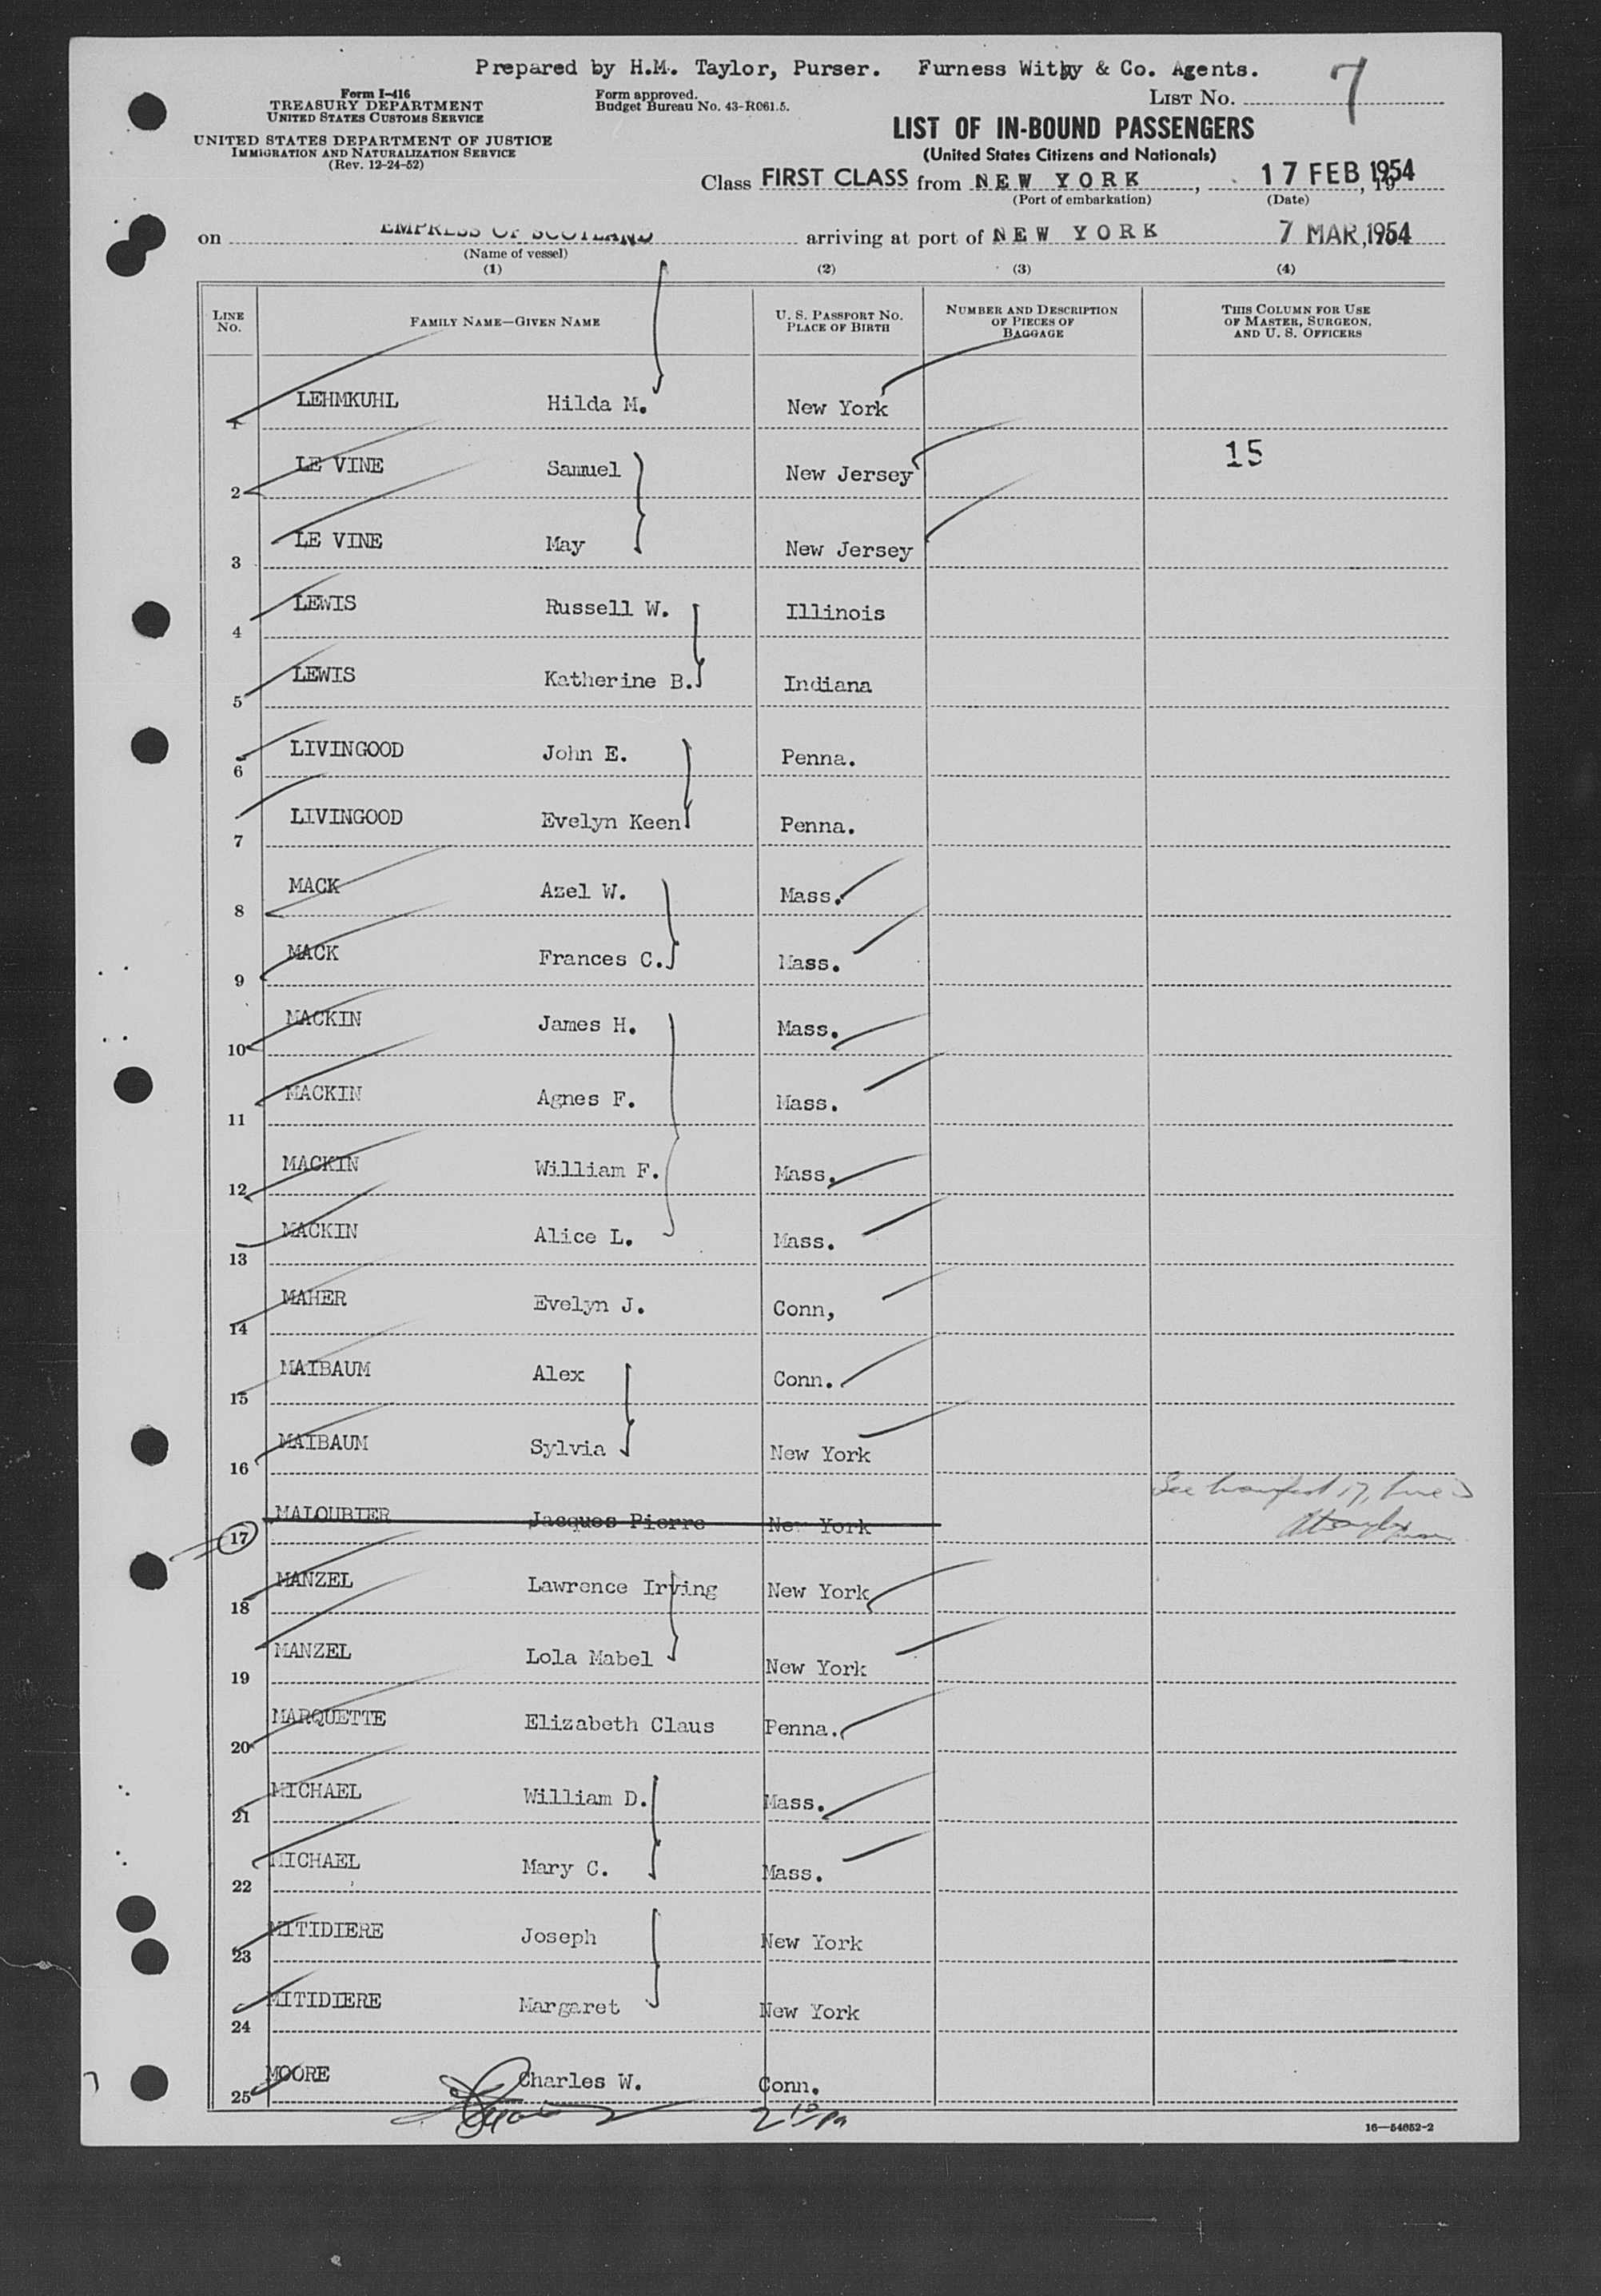 Prepared by H.M. Taylor, Purser. Furness Withy & Co. Agents.
Form I-416
TREASURY DEPARTMENT
UNITED STATES CUSTOMS SERVICE
UNITED STATES DEPARTMENT OF JUSTICE
IMMIGRATION AND NATURALIZATION SERVICE
(Rev. 12-24-52)
Form approved.
Budget Bureau No. 43-R061.5.
LIST NO. 7
LIST OF IN-BOUND PASSENGERS
(United States Citizens and Nationals)
Class FIRST CLASS from NEW YORK, 17 FEB 1954, 19
(Port of embarkation) (Date)
on EMPRESS OF SCOTLAND arriving at port of NEW YORK 7 MAR, 1954
(Name of vessel)
(1) (2) (3) (4)
LINE NO. FAMILY NAME—GIVEN NAME U. S. PASSPORT NO. PLACE OF BIRTH NUMBER AND DESCRIPTION OF PIECES OF BAGGAGE THIS COLUMN FOR USE OF MASTER, SURGEON, AND U. S. OFFICERS
1 LEHMKUHL Hilda M. New York
2 LE VINE Samuel New Jersey 15
3 LE VINE May New Jersey
4 LEWIS Russell W. Illinois
5 LEWIS Katherine B. Indiana
6 LIVINGOOD John E. Penna.
7 LIVINGOOD Evelyn Keen Penna.
8 MACK Azel W. Mass.
9 MACK Frances C. Mass.
10 MACKIN James H. Mass.
11 MACKIN Agnes F. Mass.
12 MACKIN William F. Mass.
13 MACKIN Alice L. Mass.
14 MAHER Evelyn J. Conn,
15 MAIBAUM Alex Conn.
16 MAIBAUM Sylvia New York
17 MALOUBIER Jacques Pierre New York See manifest 17, line
18 MANZEL Lawrence Irving New York
19 MANZEL Lola Mabel New York
20 MARQUETTE Elizabeth Claus Penna.
21 MICHAEL William D. Mass.
22 MICHAEL Mary C. Mass.
23 MITIDIERE Joseph New York
24 MITIDIERE Margaret New York
25 MOORE Charles W. Conn.
2 10 PM
16—54652-2